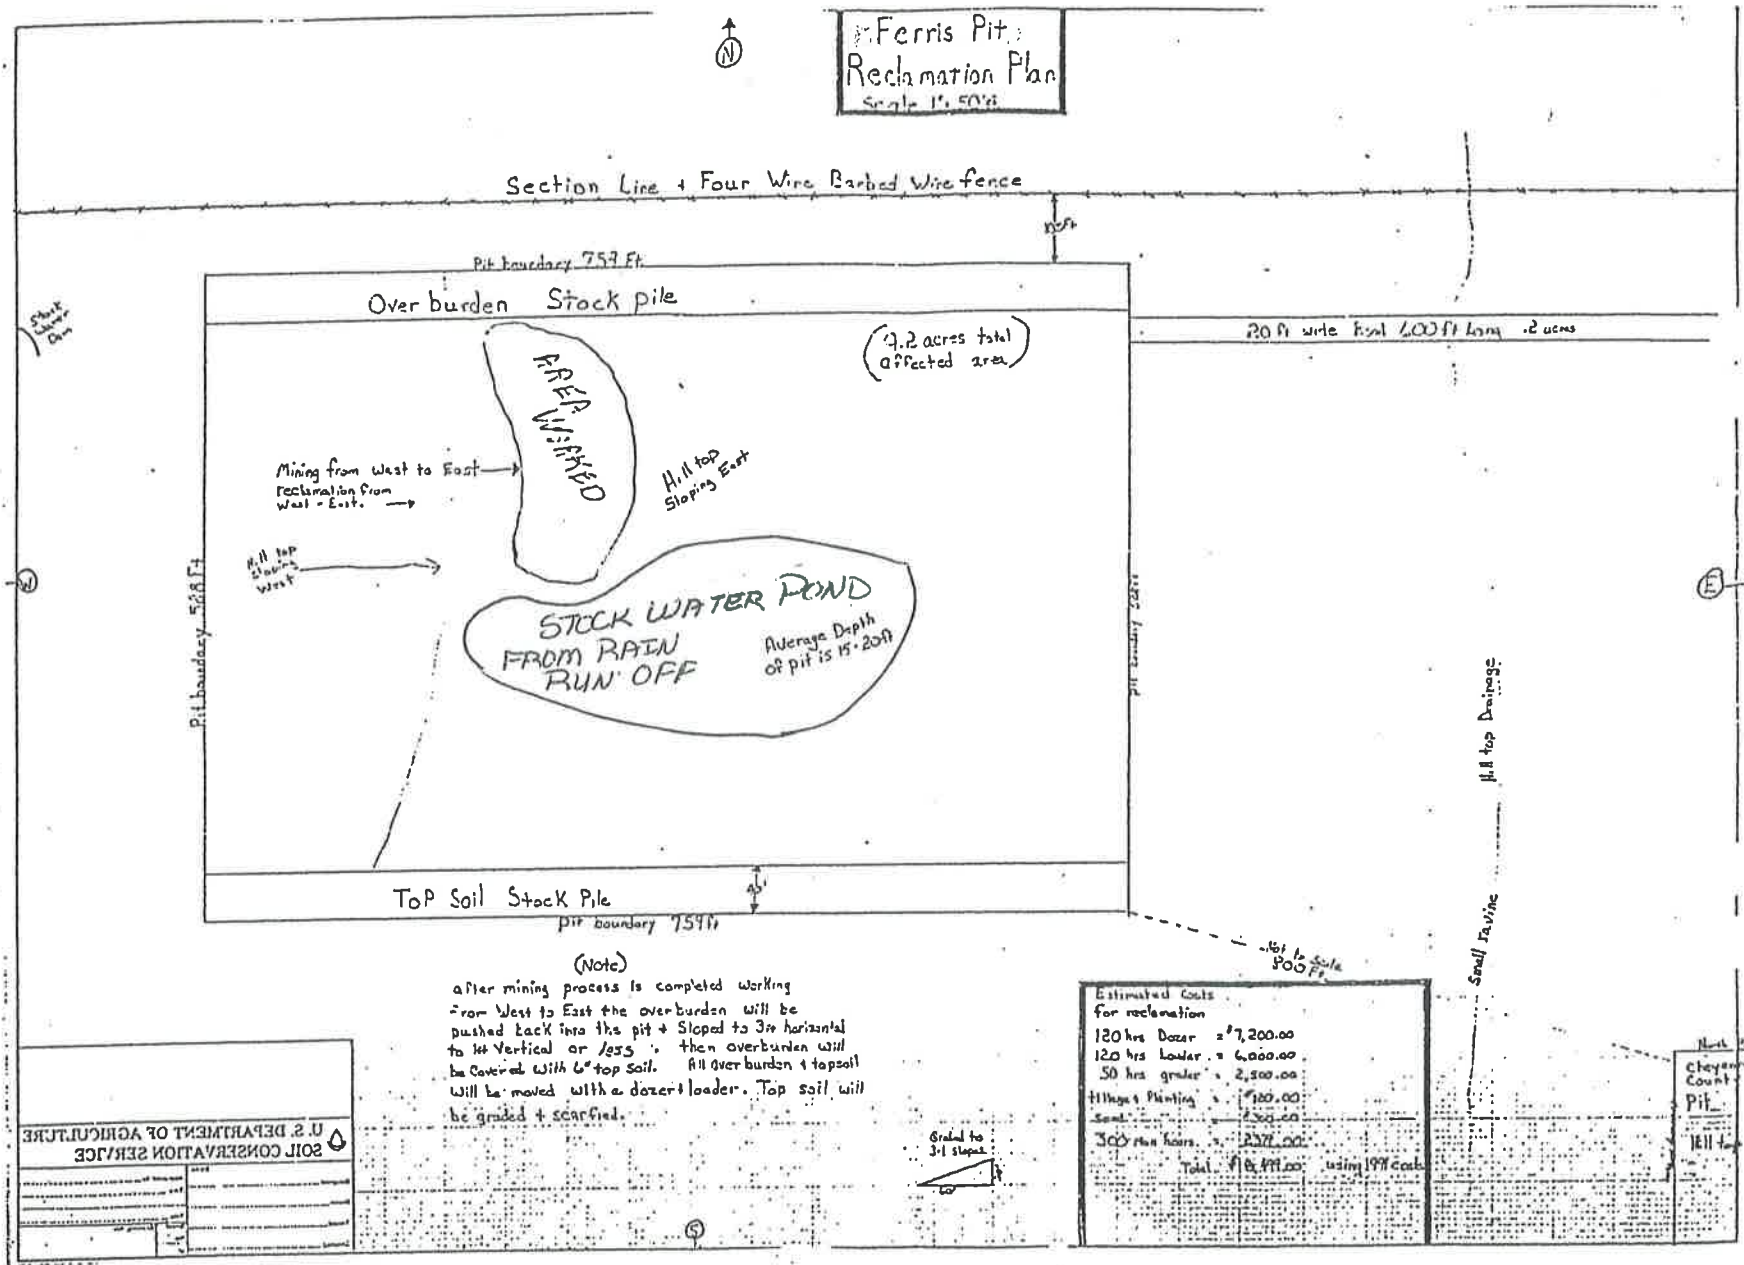 N
Ferris Pit
Reclamation Plan
Scale 1"
Section Line + Four Wire Barbed Wire fence
Pit boundary 759 Ft
Over burden Stock pile
20 ft wide 600 ft Long .2 acres
Stock
Water
Dam
(9.2 acres total
affected area)
AREA
WORKED
Mining from West to East
reclamation from
West - East.
Hill top
Sloping East
Hill top
Sloping
West
W
E
Pit boundary 528 Ft
pit boundary
STOCK WATER POND
FROM RAIN
RUN OFF
Average Depth
of pit is 15-20ft
Hill top Drainage
Small ravine
Top Soil Stock Pile
45'
pit boundary 759 ft
Not to Scale
800 Ft
(Note)
after mining process is completed working
From West to East the overburden will be
pushed back into the pit + Sloped to 3ft horizontal
to 1ft Vertical or less then overburden will
be Covered with 6" top soil. All Over burden + topsoil
will be moved with a dozer + loader. Top soil will
be graded + scarfied.
Estimated Costs
for reclamation
120 hrs Dozer = $7,200.00
120 hrs Loader = 6,000.00
50 hrs grader = 2,500.00
tillage & Planting
Seed
300 man hours
Total
North
Cheyen
Count
Pit
Hill to
Graded to
3-1 slopes
60'
U. S. DEPARTMENT OF AGRICULTURE
SOIL CONSERVATION SERVICE
S